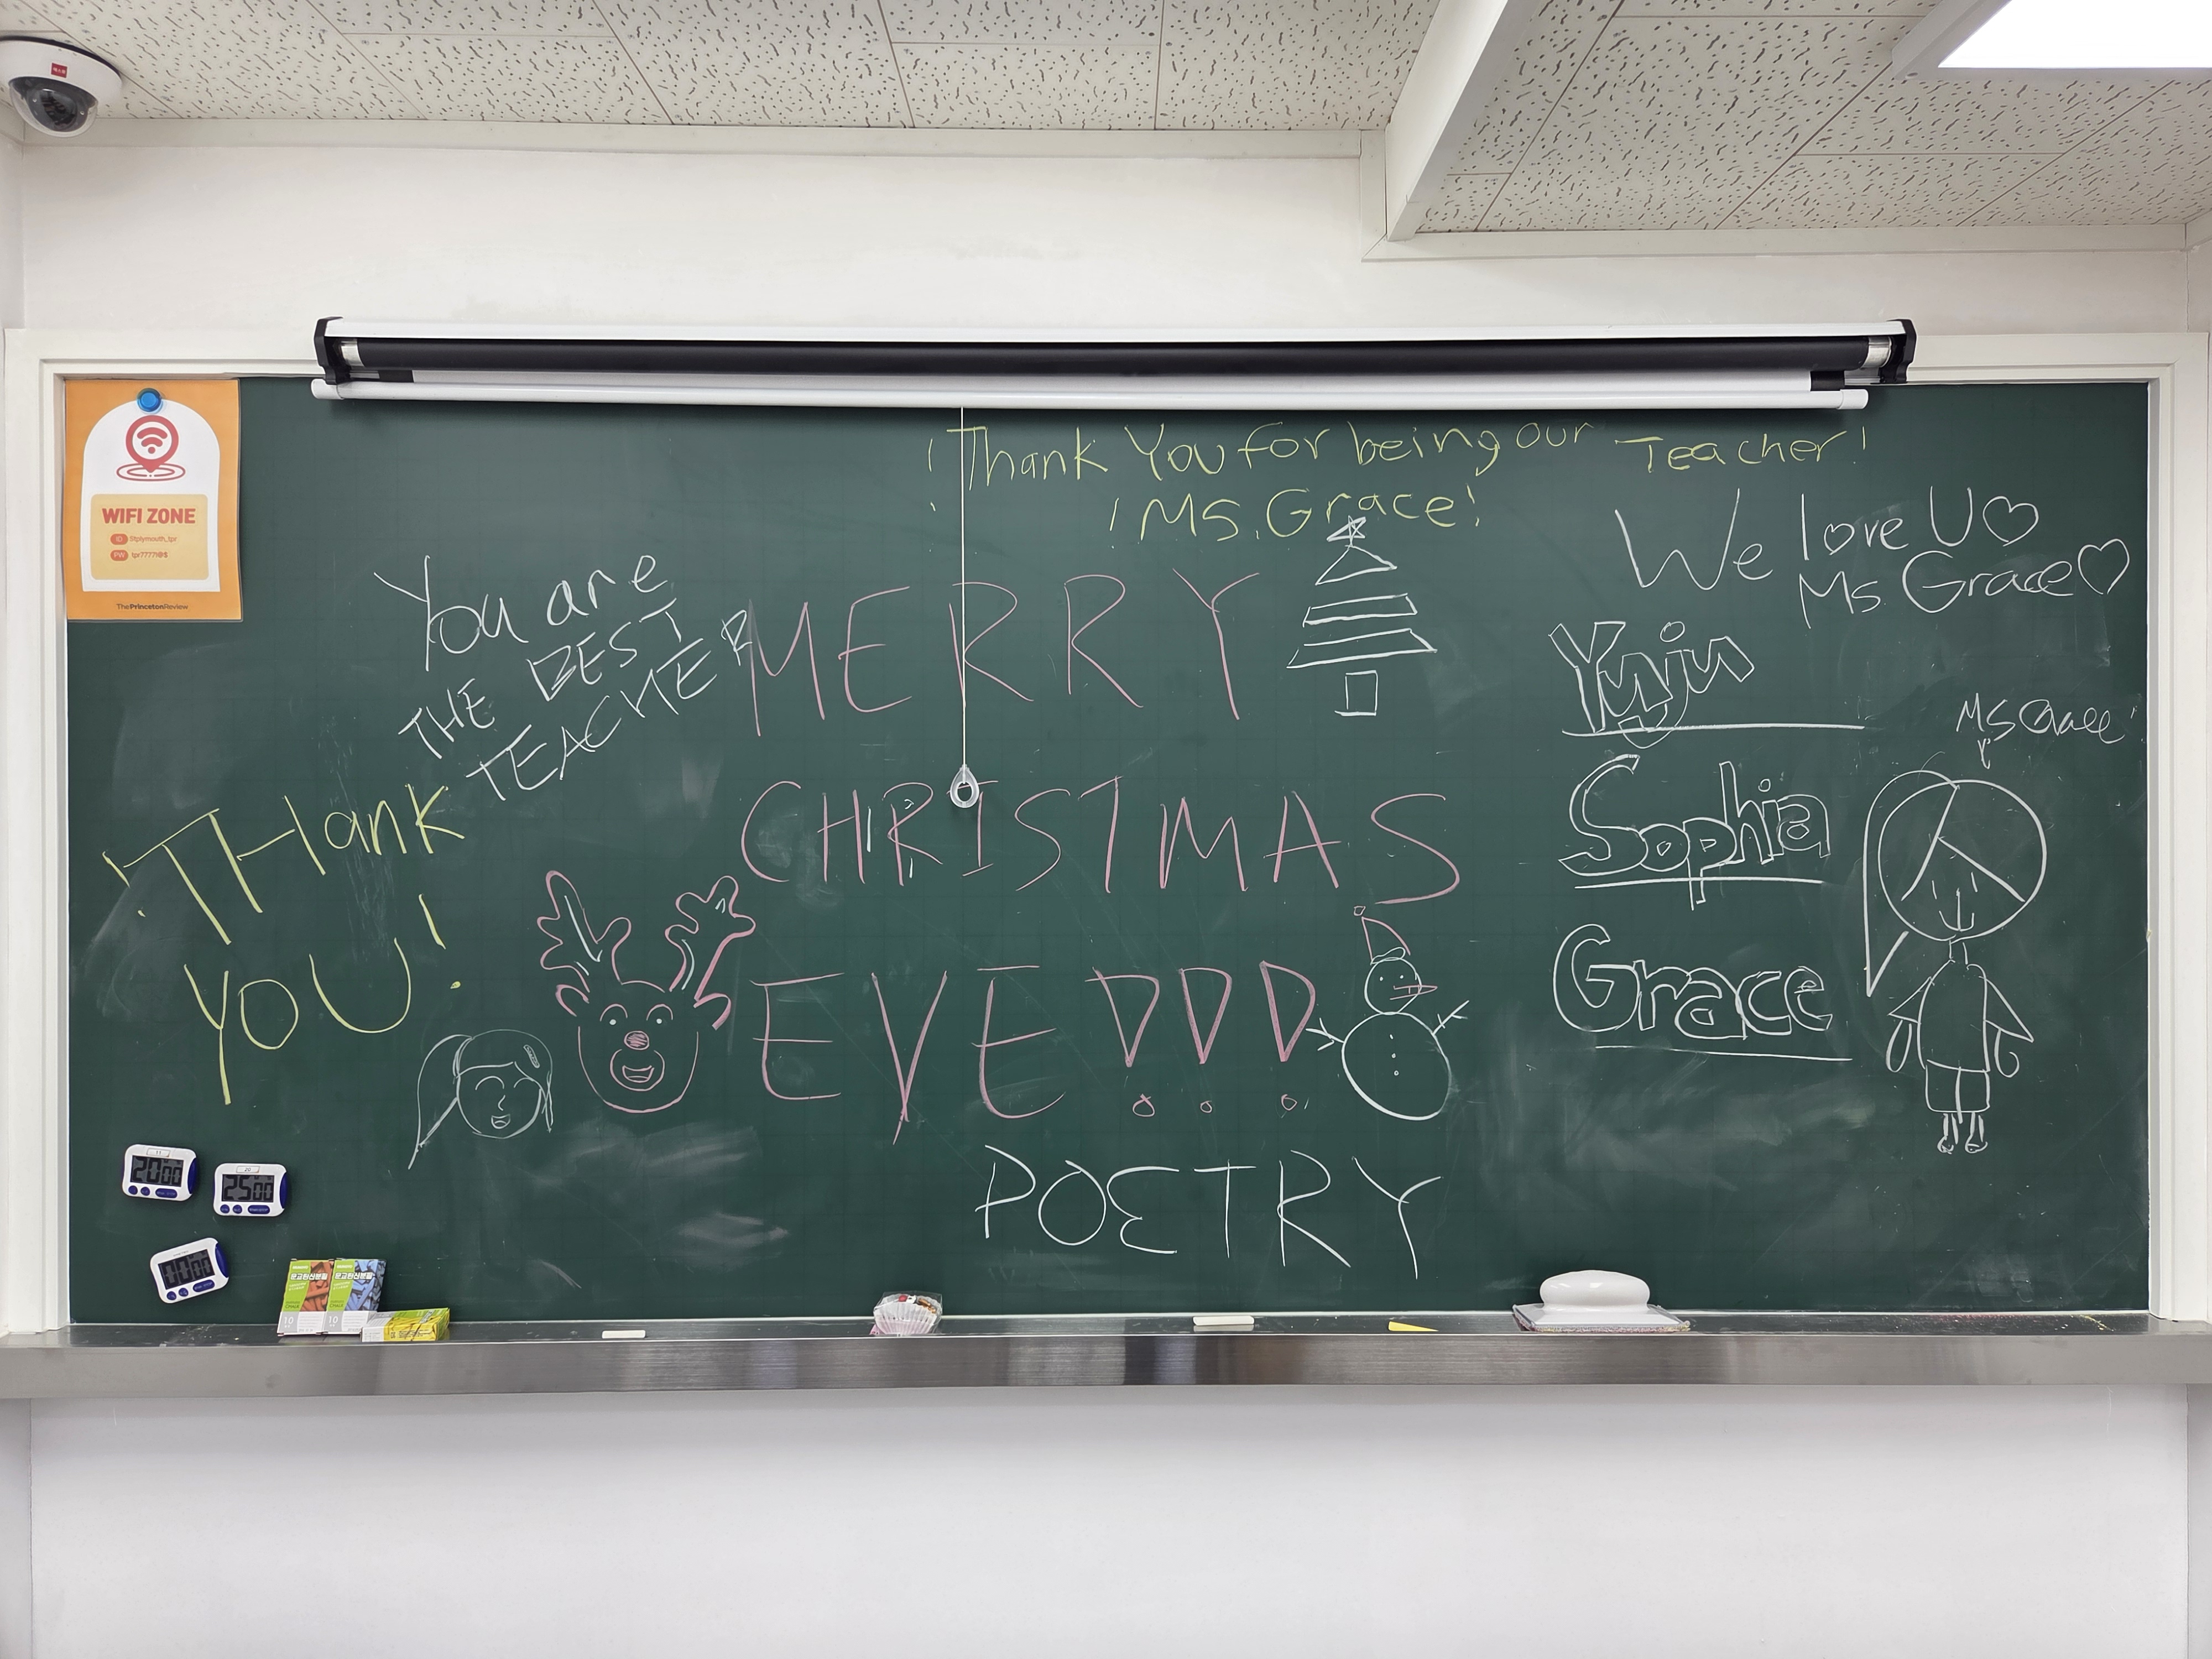 WIFI ZONE
ID Stplymouth_tpr
PW tpr7777!@$
The Princeton Review
!Thank You for being our Teacher!
!Ms. Grace!
We love U♡
Ms. Grace♡
You are
THE BEST
TEACHER
MERRY
CHRISTMAS
EVE!!!
POETRY
!THank
YOU!
Yuju
Sophia
Grace
Ms Grace!
20 00
25 00
00 00
문교원신분필
10
10